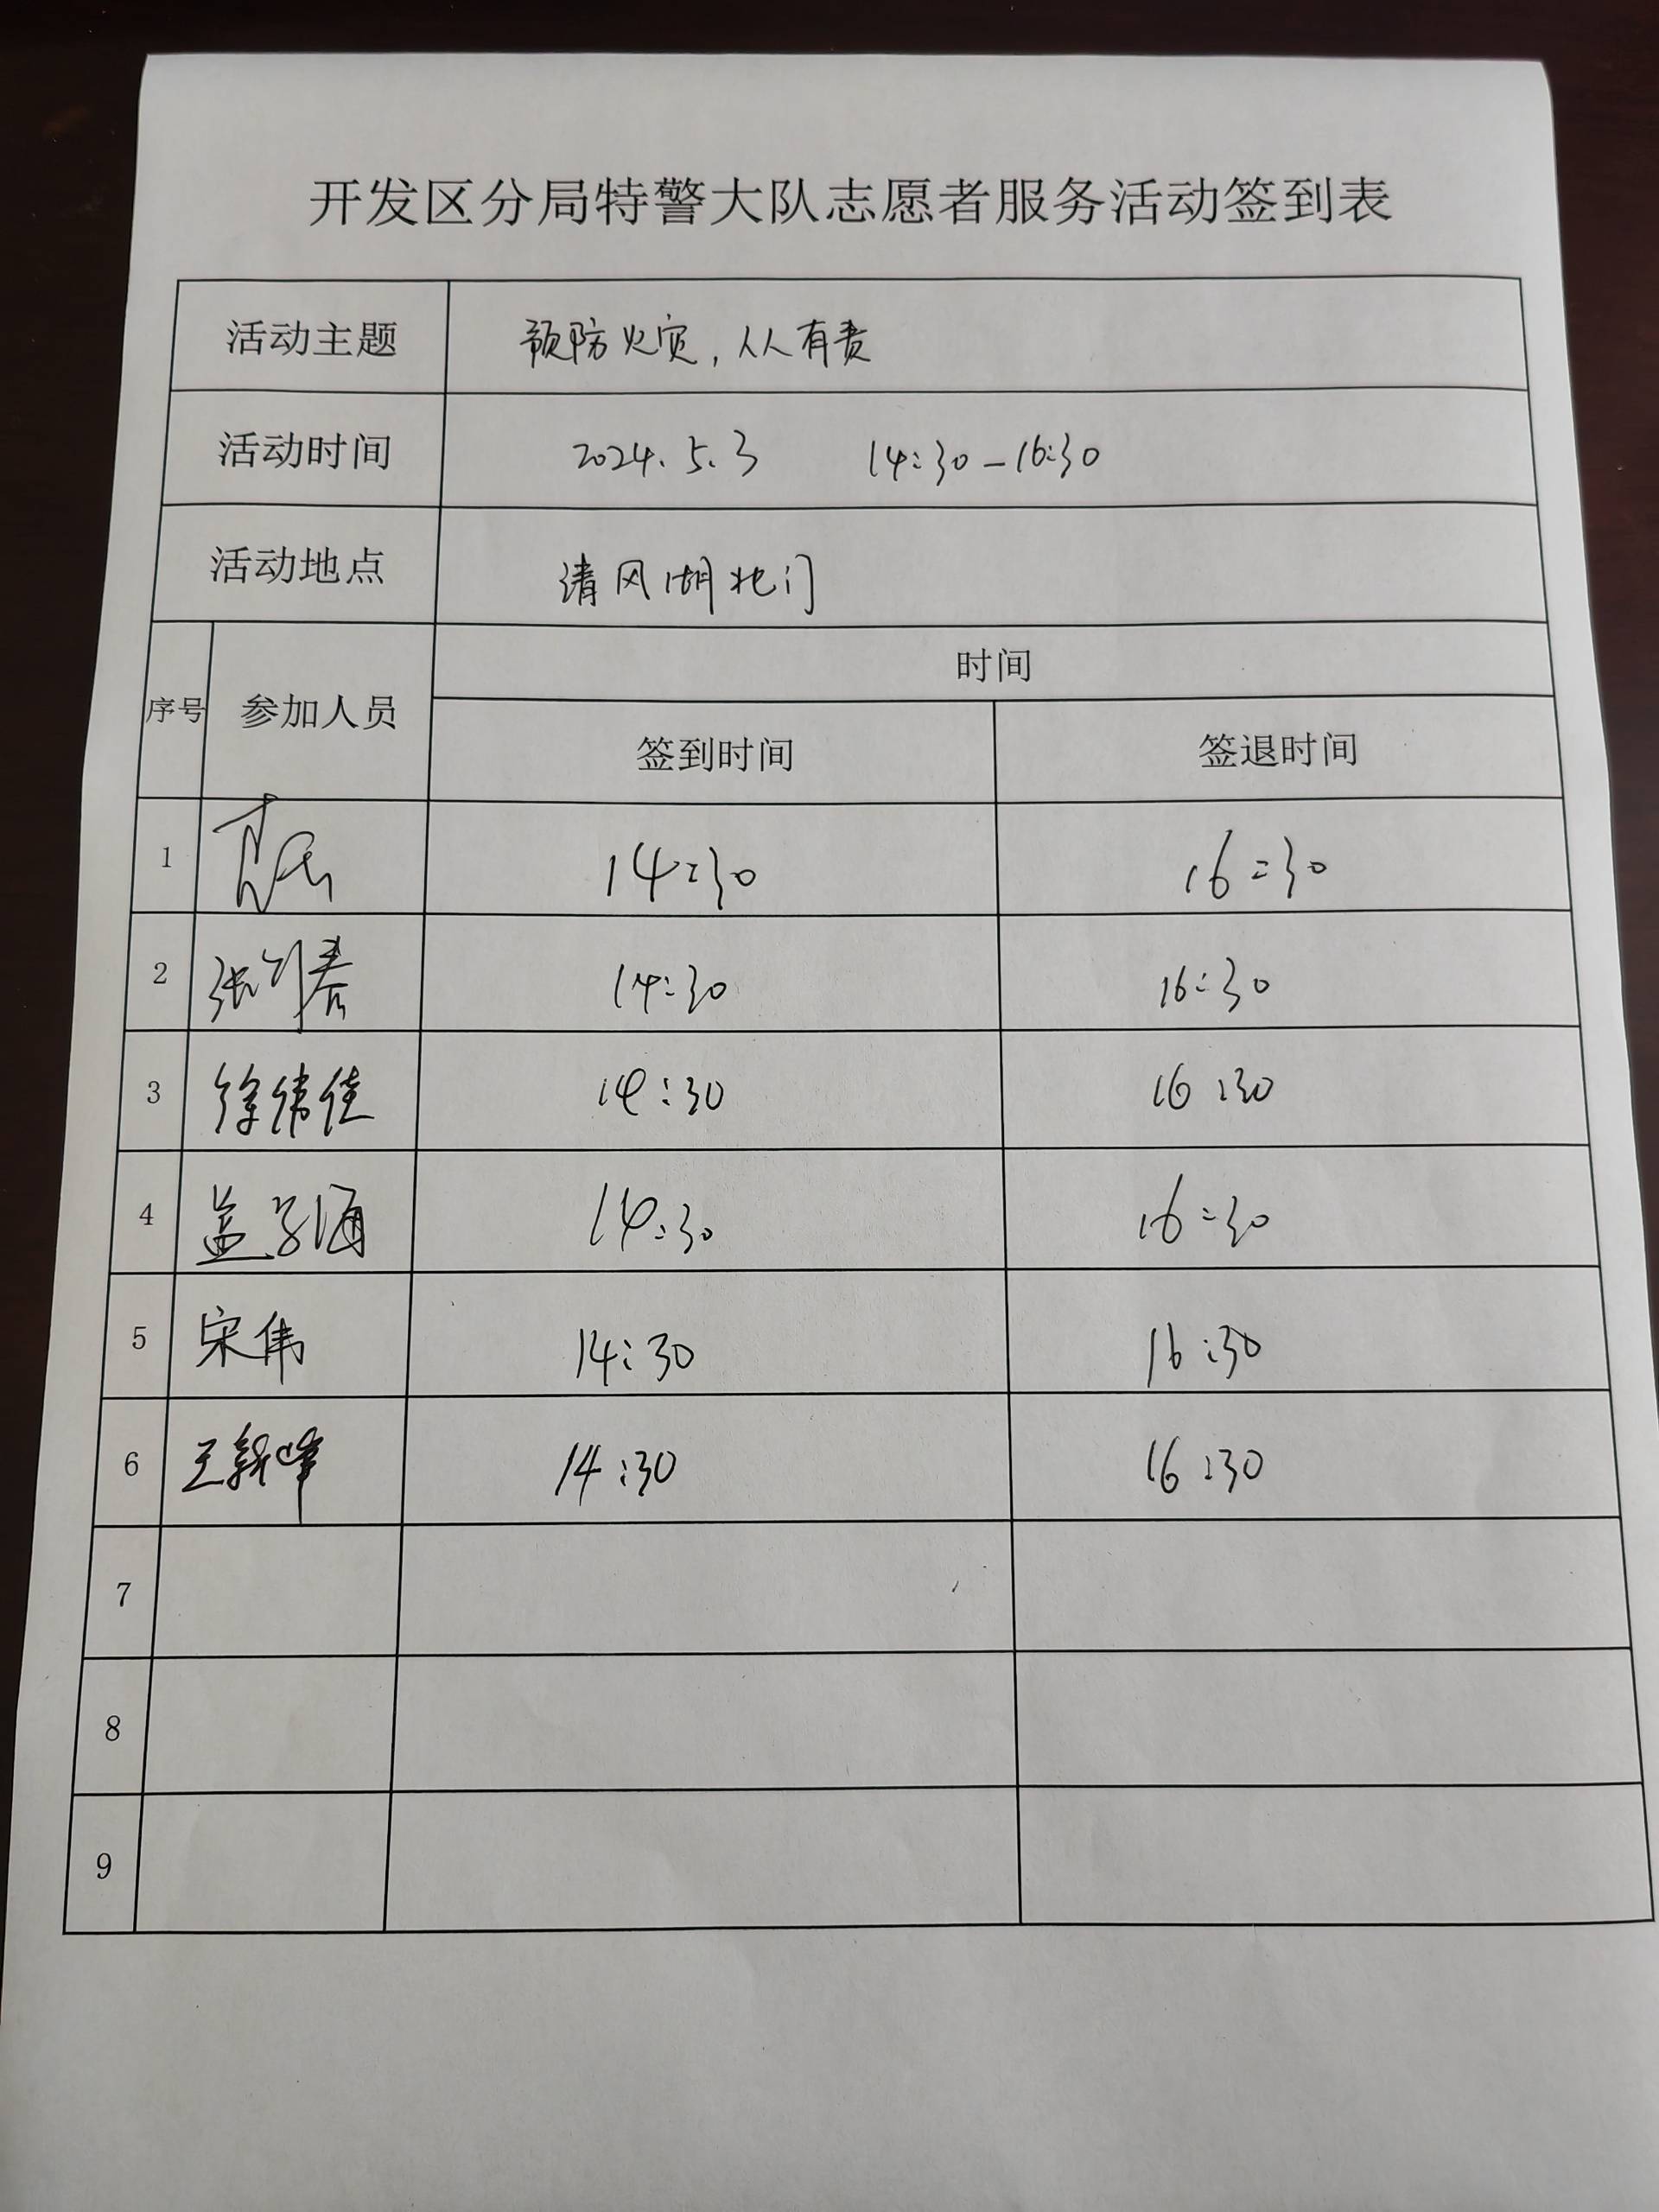 开发区分局特警大队志愿者服务活动签到表
活动主题 预防火灾，人人有责
活动时间 2024.5.3 14:30-16:30
活动地点 清风湖北门
时间
序号 参加人员
签到时间 签退时间
1 14:30 16:30
2 张 春 14:30 16:30
3 徐伟佳 14:30 16:30
4 盖子涵 14:30 16:30
5 宋伟 14:30 16:30
6 王新峰 14:30 16:30
7
8
9